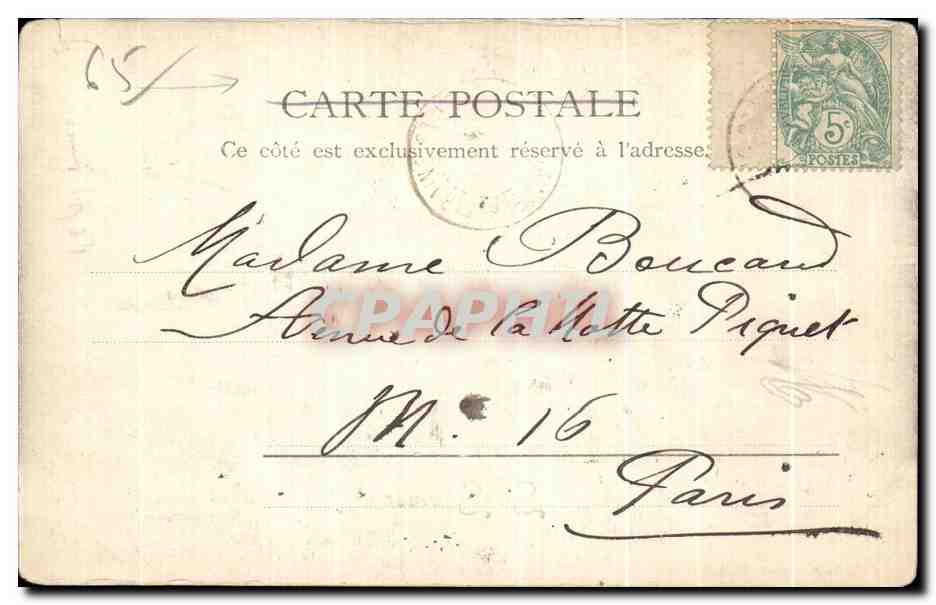 65/
CARTE POSTALE
Ce côté est exclusivement réservé à l'adresse.
5c
POSTES
Madame Boucard
Avenue de la Motte Piquet
CPAPHIL
N° 16
Paris